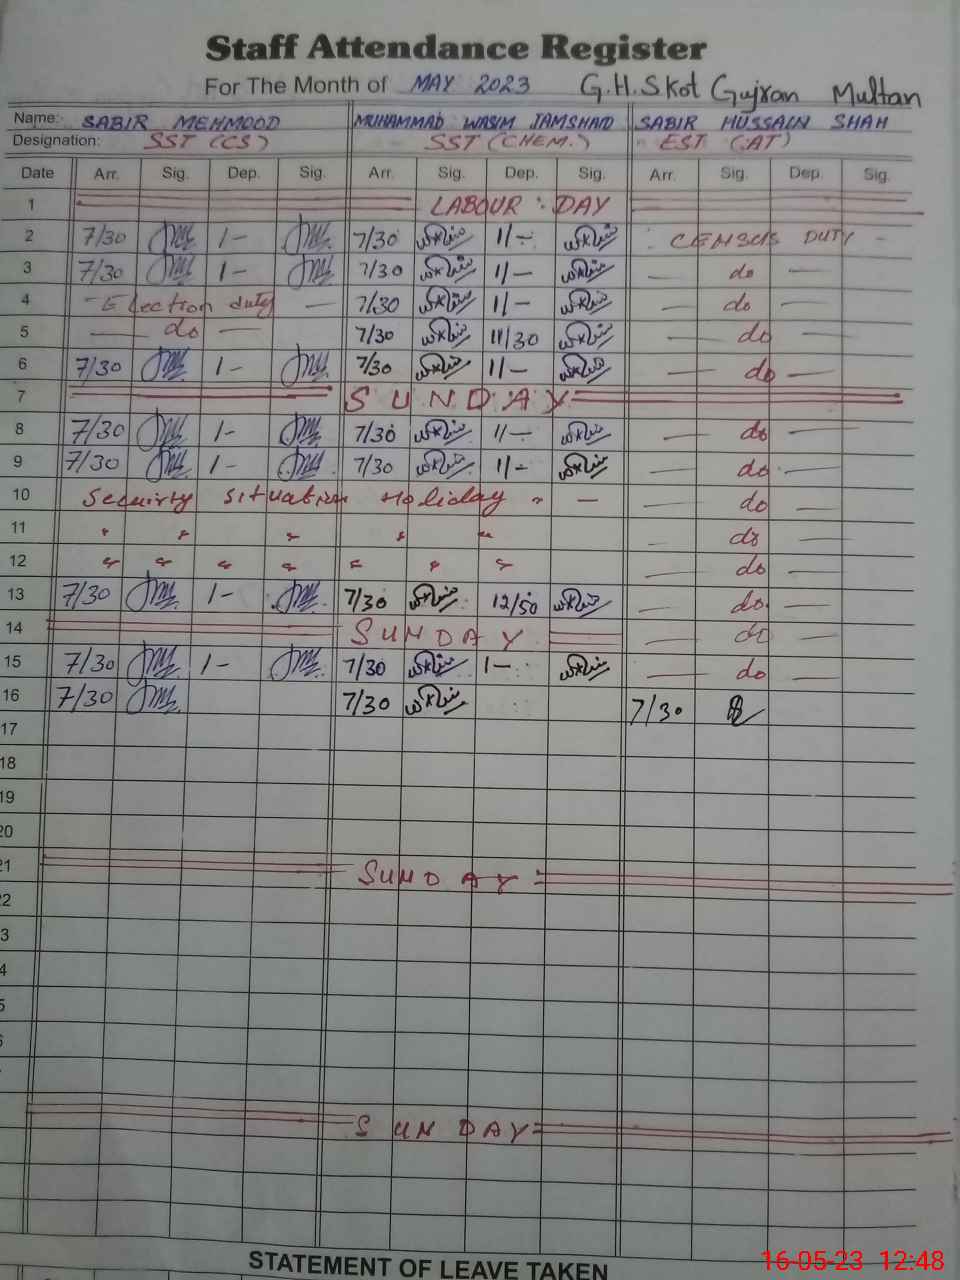 Staff Attendance Register
For The Month of MAY 2023 G.H.S Kot Gujran Multan
Name: SABIR MEHMOOD MUHAMMAD WASIM JAMSHAID SABIR HUSSAIN SHAH
Designation: SST (CS) SST (CHEM.) EST (AT)
Date Arr. Sig. Dep. Sig. Arr. Sig. Dep. Sig. Arr. Sig. Dep. Sig.
1 LABOUR DAY
2 7/30 1- 7/30 11- CENSUS DUTY -
3 7/30 1- 7/30 11- — do —
4 - Election duty — 7/30 11- — do —
5 — do — 7/30 11/30 — do —
6 7/30 1- 7/30 11- — do —
7 SUNDAY
8 7/30 1- 7/30 11- — do —
9 7/30 1- 7/30 11- — do —
10 Security situation Holiday " — — do —
11 " " " " " — do —
12 " " " " " " " — do —
13 7/30 1- 7/30 12/50 — do —
14 SUNDAY — do —
15 7/30 1- 7/30 1- — do —
16 7/30 7/30 7/30
17
18
19
20
21 SUNDAY
2
3
4
5
6
SUNDAY
STATEMENT OF LEAVE TAKEN
16-05-23 12:48